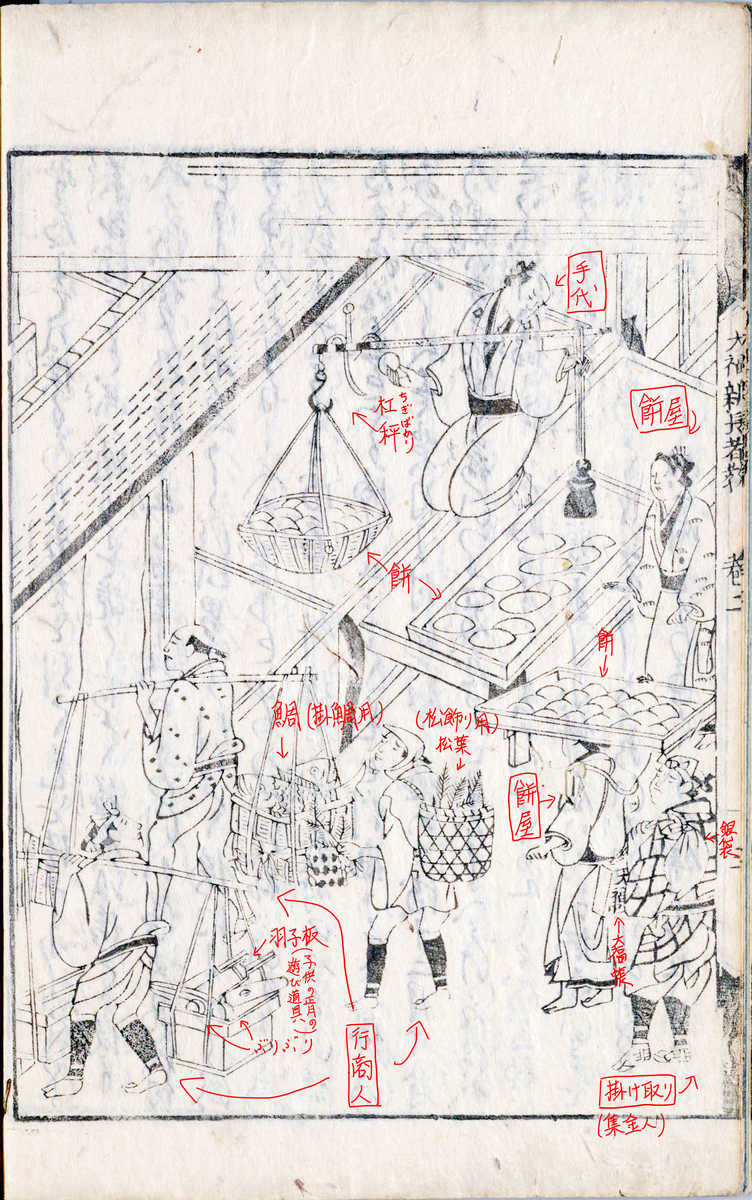 手代
杠秤
ちぎばかり
餅屋
大福新長者教
巻二
餅
餅
鯛(掛鯛用)
(松飾り用)
松葉
餅屋
銀袋
大福
大福帳
羽子板
(子供の正月の
遊び道具)
ぶりぶり
行商人
掛け取り
(集金人)